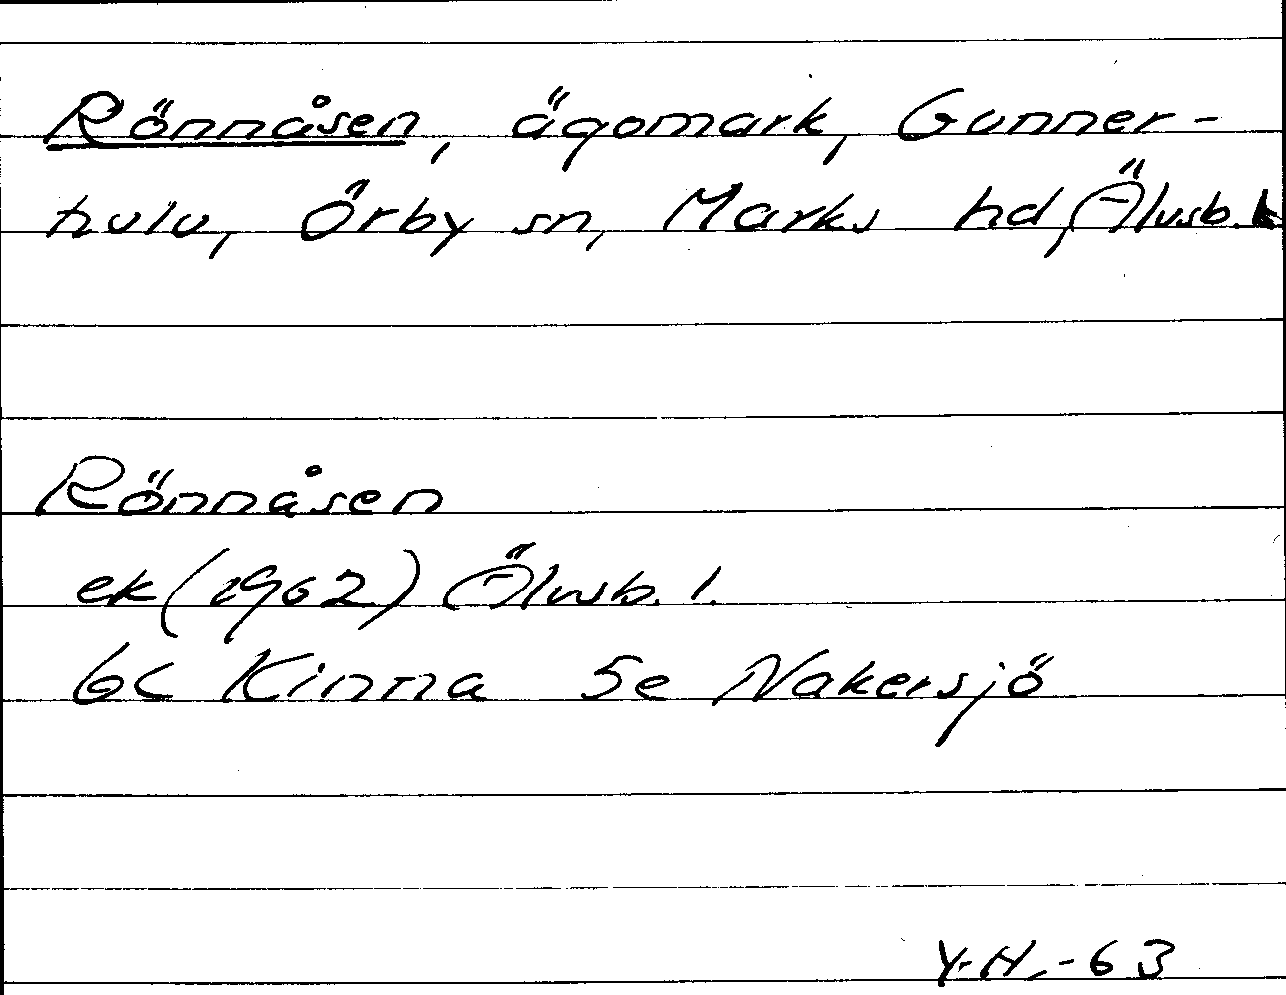 Rönnåsen, ägomark, Gunner-
hulu, Örby sn, Marks hd, Älvsb. l.
Rönnåsen
ek (1962) Älvsb. l.
6C Kinna 5e Nakersjö
Y.H. -63